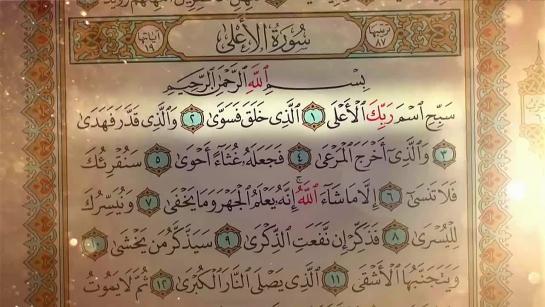 ترتيبها ٨٧ سُورَةُ الأَعْلَىٰ آياتها ١٩
بِسْمِ اللَّهِ الرَّحْمَٰنِ الرَّحِيمِ
سَبِّحِ اسْمَ رَبِّكَ الْأَعْلَى ١ الَّذِي خَلَقَ فَسَوَّىٰ ٢ وَالَّذِي قَدَّرَ فَهَدَىٰ
٣ وَالَّذِي أَخْرَجَ الْمَرْعَىٰ ٤ فَجَعَلَهُ غُثَاءً أَحْوَىٰ ٥ سَنُقْرِئُكَ
فَلَا تَنسَىٰ ٦ إِلَّا مَا شَاءَ اللَّهُ ۚ إِنَّهُ يَعْلَمُ الْجَهْرَ وَمَا يَخْفَىٰ ٧ وَنُيَسِّرُكَ
لِلْيُسْرَىٰ ٨ فَذَكِّرْ إِن نَّفَعَتِ الذِّكْرَىٰ ٩ سَيَذَّكَّرُ مَن يَخْشَىٰ ١٠
وَيَتَجَنَّبُهَا الْأَشْقَى ١١ الَّذِي يَصْلَى النَّارَ الْكُبْرَىٰ ١٢ ثُمَّ لَا يَمُوتُ